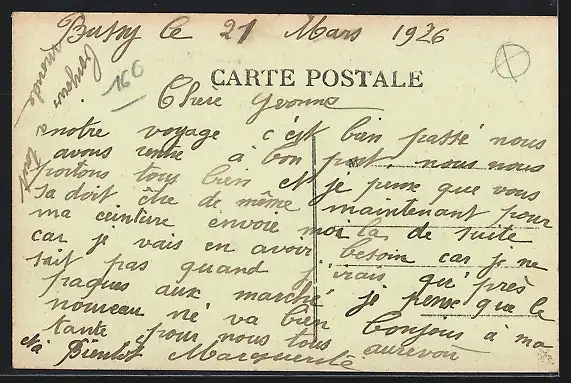 Bussy le 21 Mars 1926
CARTE POSTALE
166
Chère Yvonne
notre voyage c'est bien passé nous
avons rentré à bon port nous nous
portons tous bien et je pense que vous
sa doit être de même maintenant pour
ma ceinture envoie moi la de suite
car je vais en avoir besoin car je ne
sait pas quand j'irais qu'près
paques aux marché je pense que le
nouveau né va bien bonjour à ma
tante pour nous tous aurevoir
et à Bientot Marguerite
bonjour
tout
monde